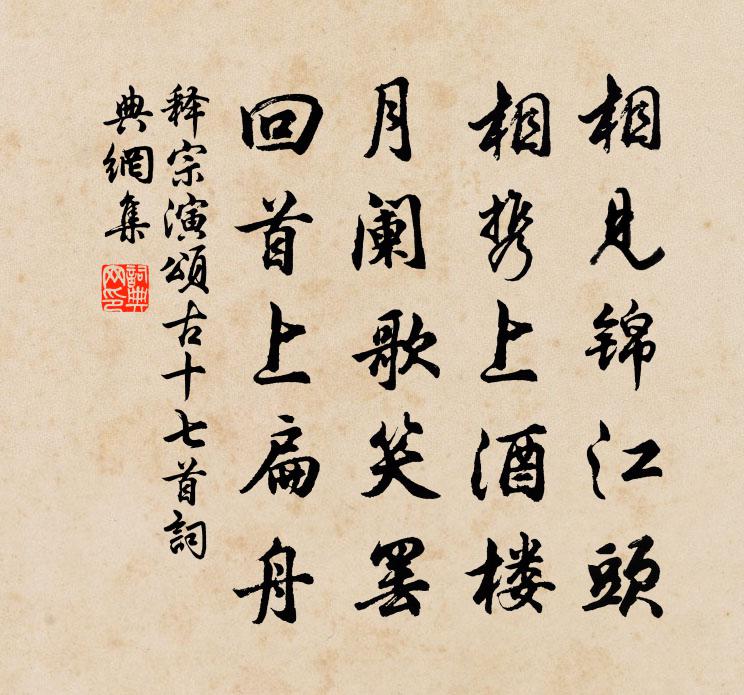 相见锦江頭
相携上酒楼
月阑歌笑罢
回首上扁舟
释宗演頌古十七首詞
典網集
詞典網印